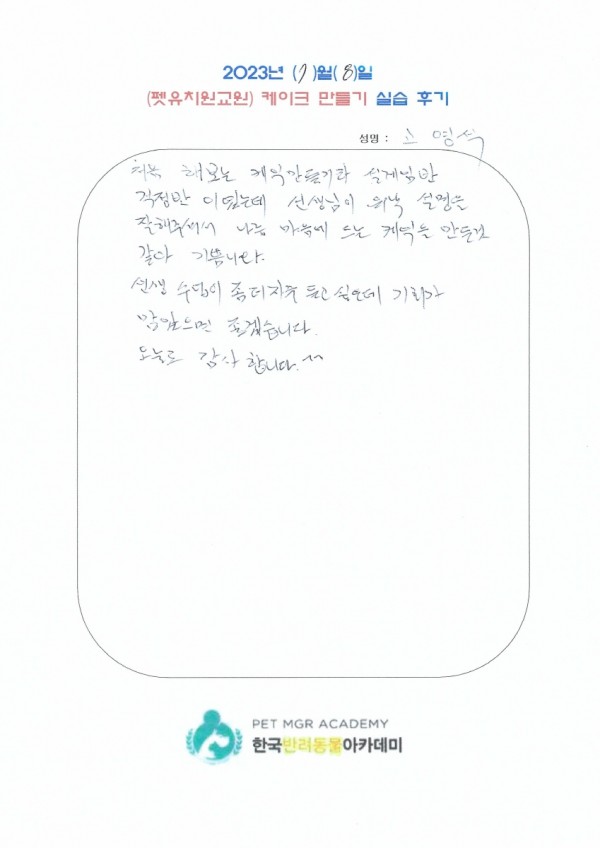 2023년 (7)월(8)일
(펫유치원교원) 케이크 만들기 실습 후기
성명 : 영석
처음 해보는 케익만들기라 설레임반
걱정반 이였는데 선생님이 워낙 설명을
잘해주셔서 나름 마음에 드는 케익을 만든것
같아 기쁩니다.
선생 수업이 좀더자주 듣고 싶은데 기회가
많았으면 좋겠습니다.
오늘도 감사합니다.^^
PET MGR ACADEMY
한국반려동물아카데미